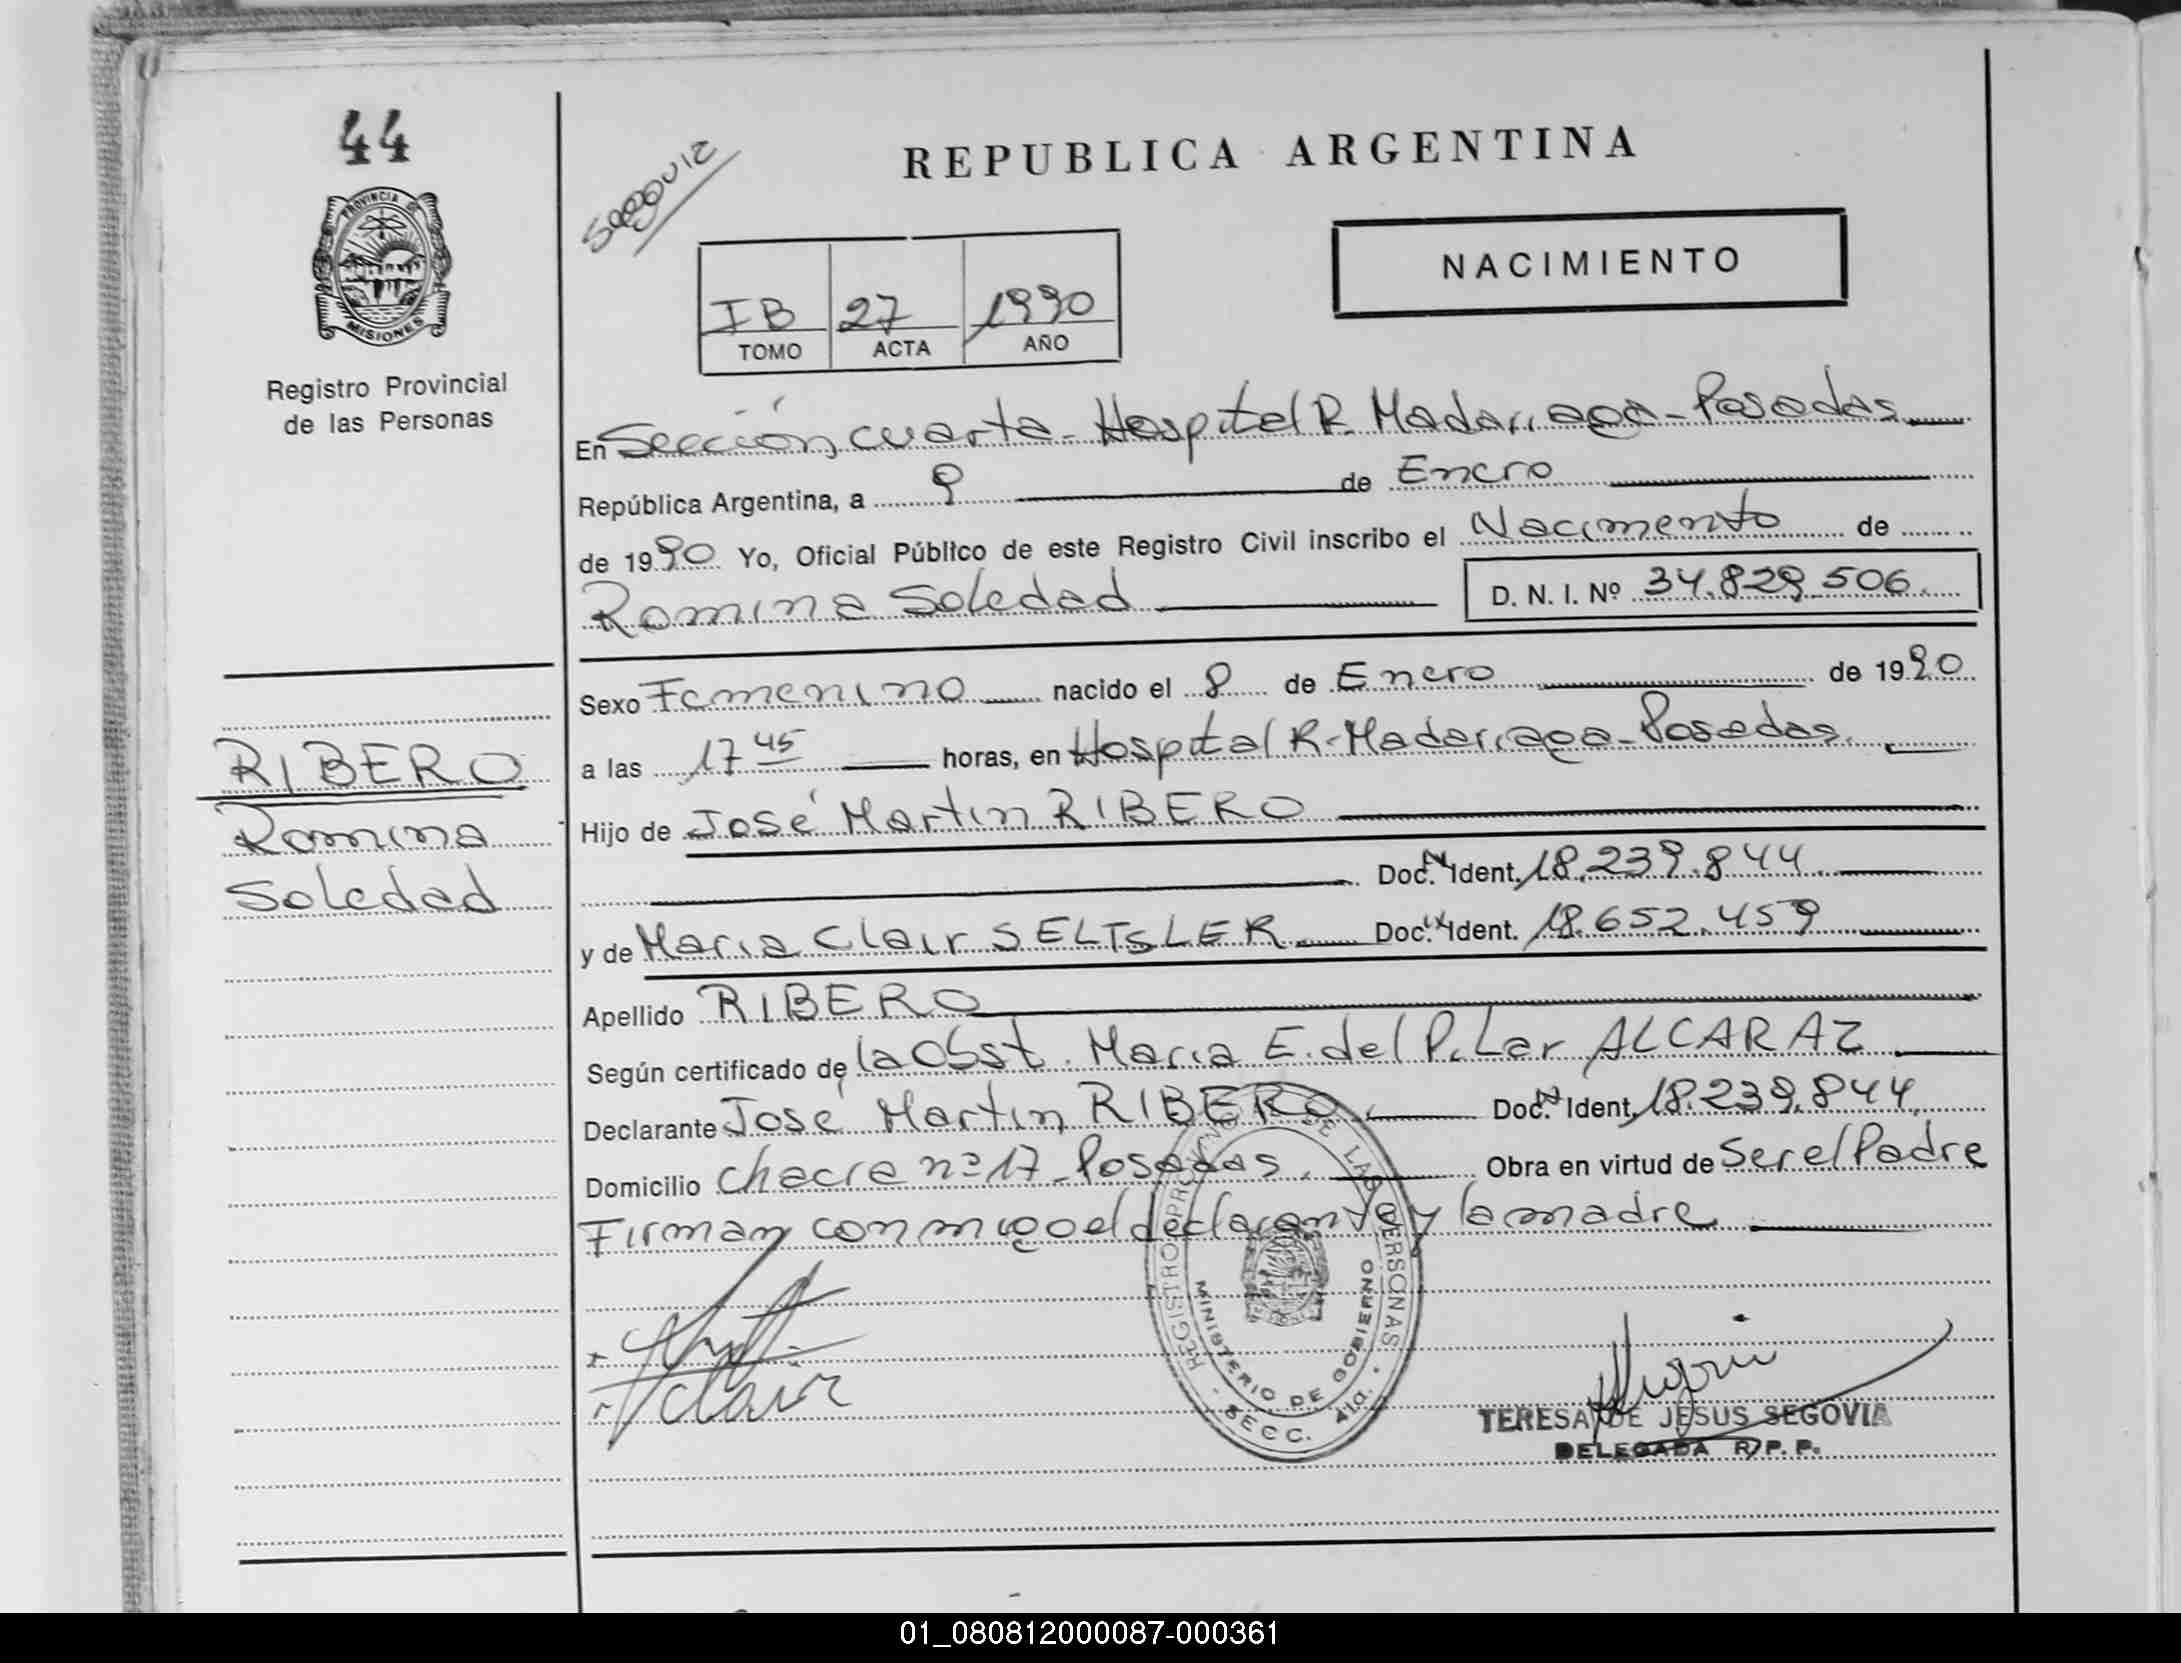 44
PROVINCIA DE
MISIONES
Registro Provincial
de las Personas
RIBERO
Romina
Soledad
REPUBLICA ARGENTINA
NACIMIENTO
IB 27 1990
TOMO ACTA AÑO
En Sección cuarta - Hospital R. Madariaga - Posadas
República Argentina, a 9 de Enero
de 1990 Yo, Oficial Público de este Registro Civil inscribo el Nacimento de
Romina Soledad D. N. I. Nº 34.829.506.
Sexo Femenino nacido el 8 de Enero de 1990
a las 17 45 horas, en Hospital R. Madariaga - Posadas.
Hijo de José Martin RIBERO
Doc. N. Ident. 18.239.844
y de Maria Clair SELTSLER Doc. N. Ident. 18.652.459
Apellido RIBERO
Según certificado de la Obst. Maria E. del Pilar ALCARAZ
Declarante José Martin RIBERO. Doc. N. Ident. 18.239.844
Domicilio Chacra nº 17 - Posadas. Obra en virtud de Ser el Padre
Firman conmigo el declarante y la madre
REGISTRO PROVINCIAL DE LAS PERSONAS
MINISTERIO DE GOBIERNO
SECC. 4ta.
Clair
TERESA DE JESUS SEGOVIA
DELEGADA R. P. P.
01_080812000087-000361